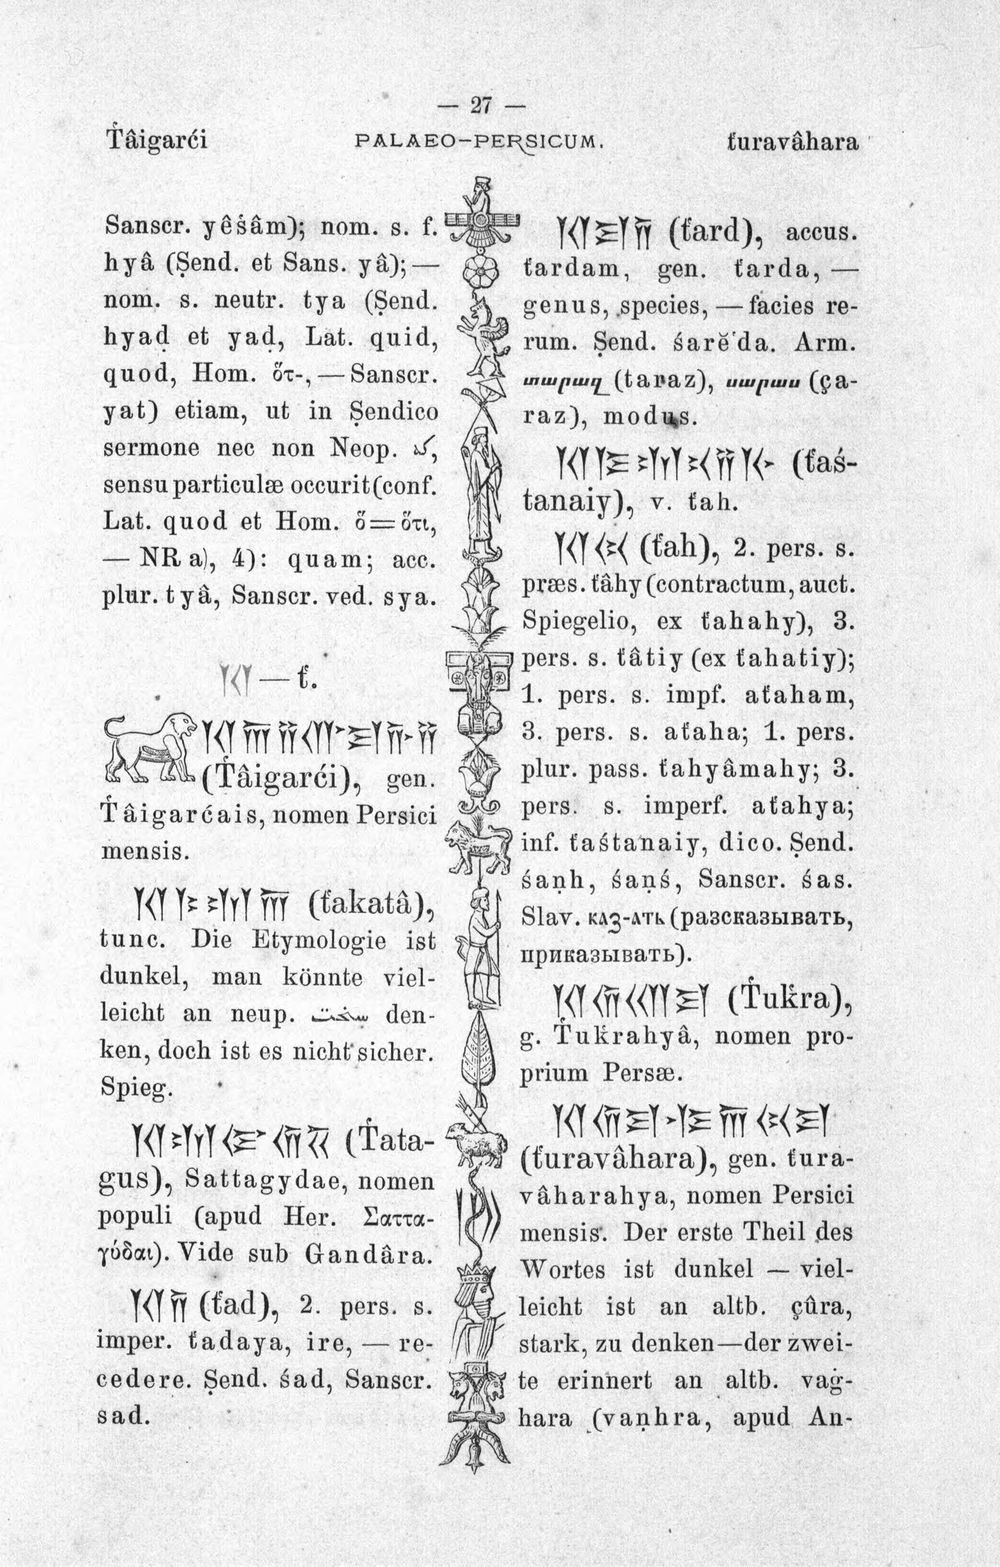 — 27 —
T́âigarći PALAEO-PERSICUM. t́uravâhara
Sanscr. yêśâm); nom. s. f.
hyâ (Șend. et Sans. yâ); —
nom. s. neutr. tya (Șend.
hyaḍ et yaḍ, Lat. quid,
quod, Hom. ὅτ-, — Sanscr.
yat) etiam, ut in Șendico
sermone nec non Neop.
sensu particulæ occurit (conf.
Lat. quod et Hom. ὅ = ὅτι,
— NR a), 4): quam; acc.
plur. tyâ, Sanscr. ved. sya.
𐎰 — t́.
𐎰𐎠𐎡𐎥𐎼𐎨𐎡
(T́âigarći), gen.
T́âigarćais, nomen Persici
mensis.
𐎰𐎣𐎫𐎠 (t́akatâ),
tunc. Die Etymologie ist
dunkel, man könnte viel-
leicht an neup. den-
ken, doch ist es nicht sicher.
Spieg.
𐎰𐎫𐎦𐎢𐏁 (T́ata-
gus), Sattagydae, nomen
populi (apud Her. Σαττα-
γύδαι). Vide sub Gandâra.
𐎰𐎭 (t́ad), 2. pers. s.
imper. t́adaya, ire, — re-
cedere. Șend. śad, Sanscr.
sad.
𐎰𐎼𐎭 (t́ard), accus.
t́ardam, gen. t́arda, —
genus, species, — facies re-
rum. Șend. śarĕda. Arm.
տարազ (taraz), սարաս (ça-
raz), modus.
𐎰𐎿𐎫𐎴𐎡𐎹 (t́aś-
tanaiy), v. t́ah.
𐎰𐏃 (t́ah), 2. pers. s.
præs. t́âhy (contractum, auct.
Spiegelio, ex t́ahahy), 3.
pers. s. t́âtiy (ex t́ahatiy);
1. pers. s. impf. at́aham,
3. pers. s. at́aha; 1. pers.
plur. pass. t́ahyâmahy; 3.
pers. s. imperf. at́ahya;
inf. t́aśtanaiy, dico. Șend.
śaṇh, śaṇś, Sanscr. śas.
Slav. каз-ать (разсказывать,
приказывать).
𐎰𐎢𐎧𐎼 (T́uḱra),
g. T́uḱrahyâ, nomen pro-
prium Persæ.
𐎰𐎢𐎼𐎺𐎠𐏃𐎼
(t́uravâhara), gen. t́ura-
vâharahya, nomen Persici
mensis. Der erste Theil des
Wortes ist dunkel — viel-
leicht ist an altb. çûra,
stark, zu denken — der zwei-
te erinnert an altb. vaṇ-
hara (vaṇhra, apud An-